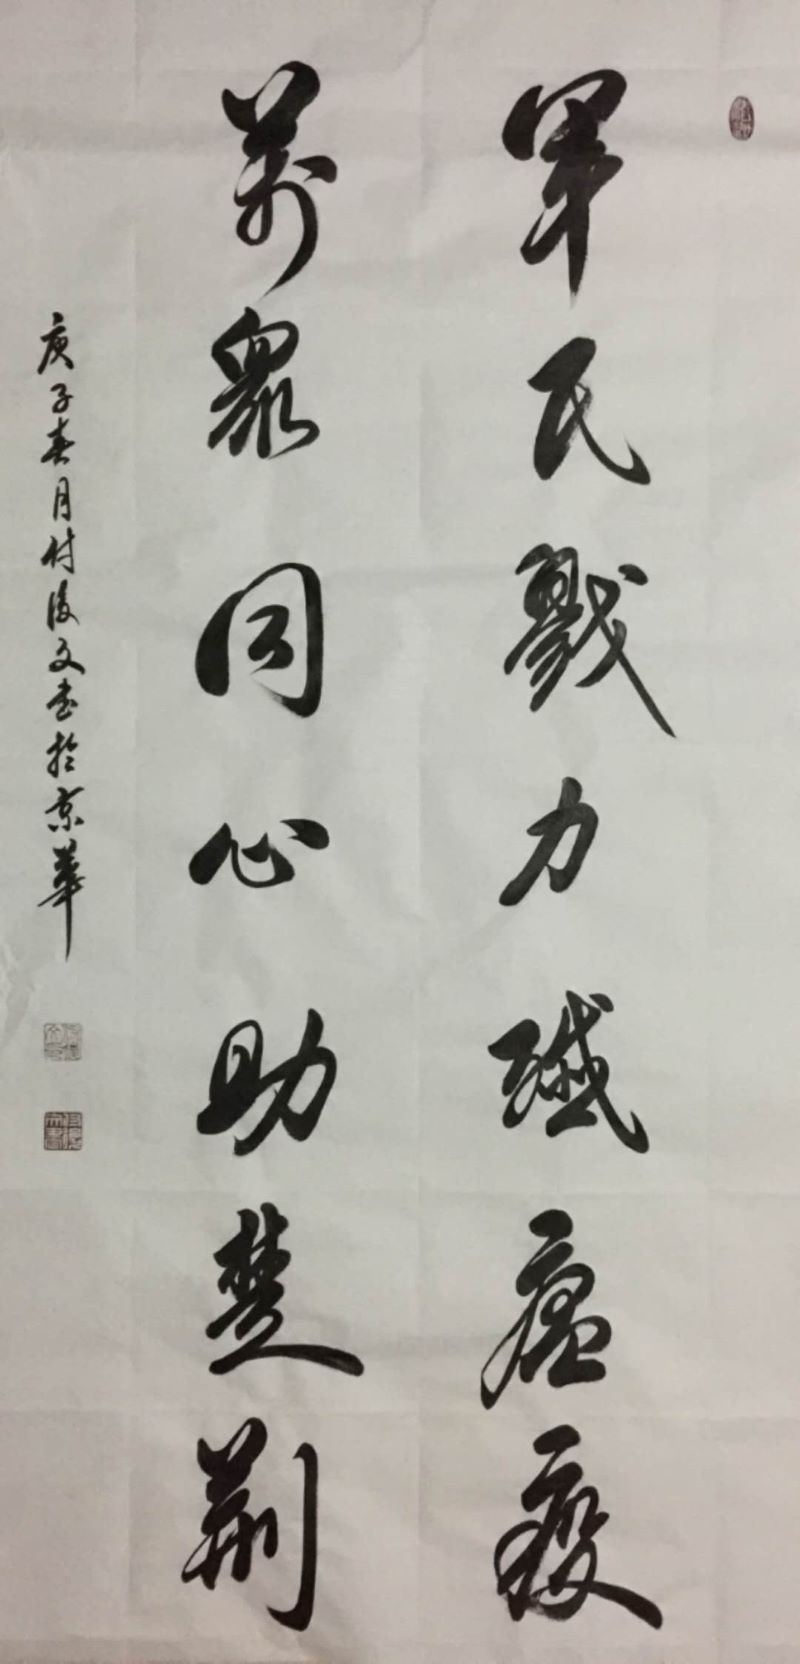 軍民戮力殲瘟疫
萬眾同心助楚荆
庚子春月付俊文書於京華